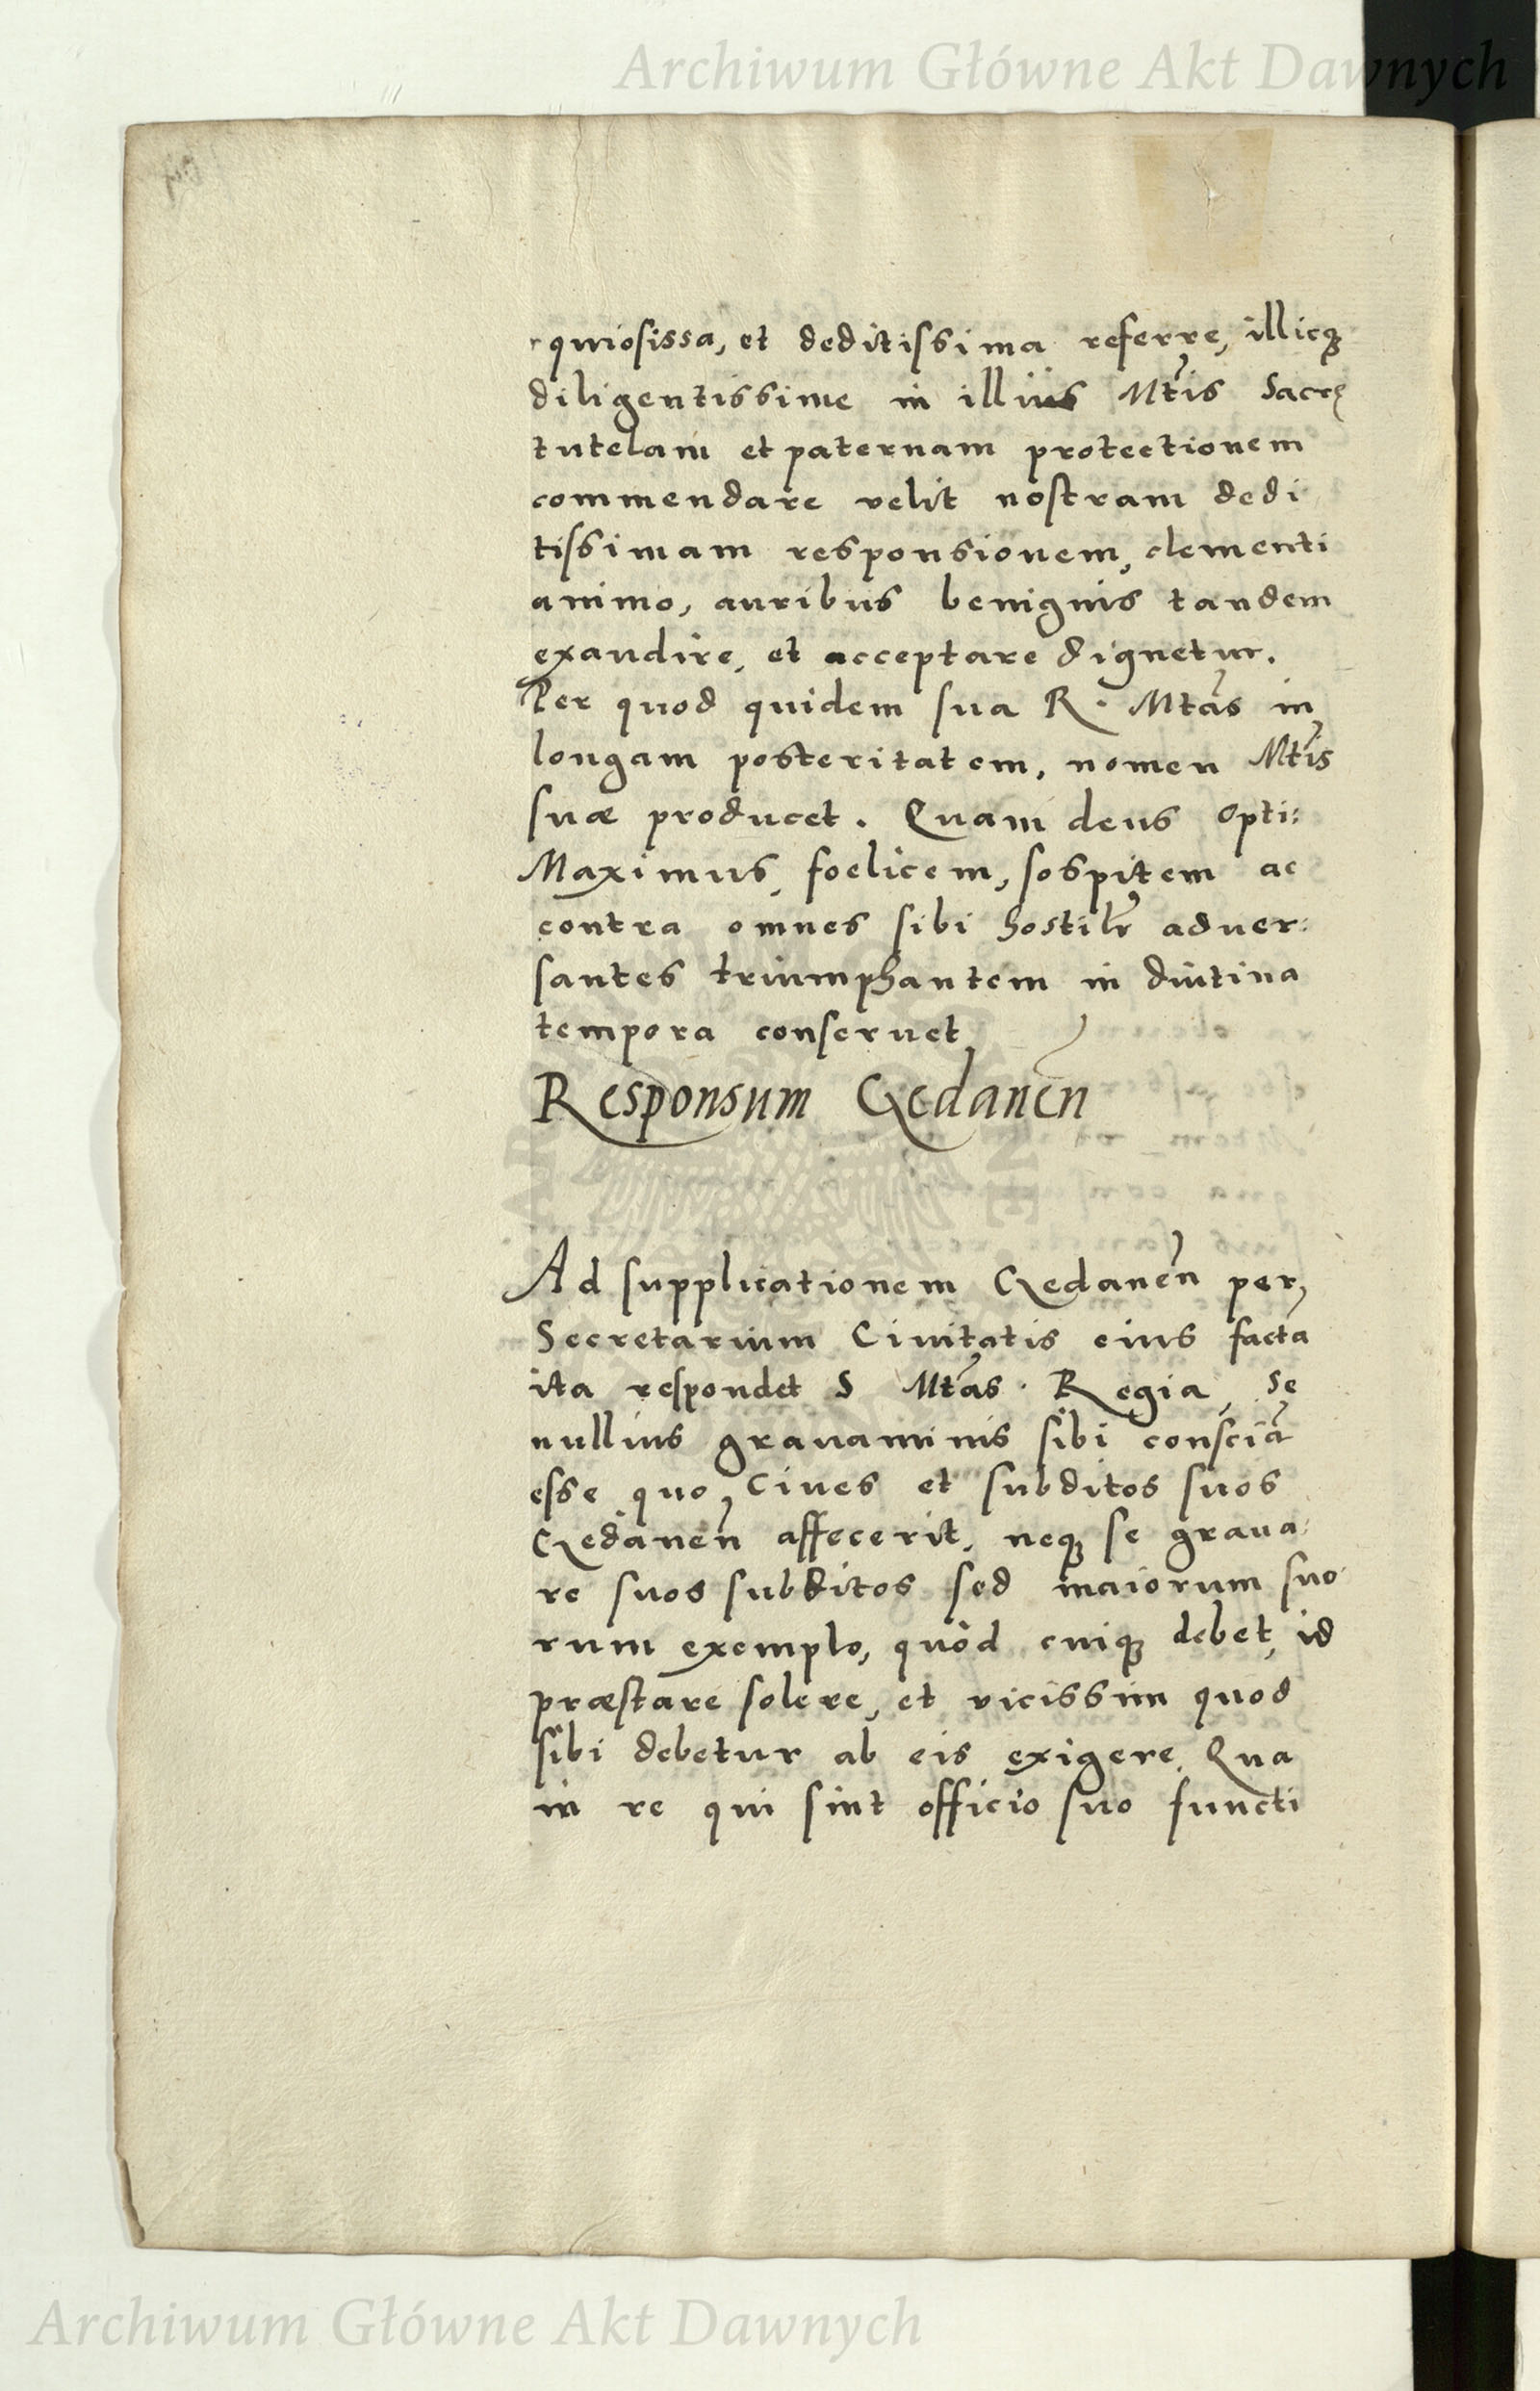 Archiwum Główne Akt Dawnych
quiosissa, et deditissima referre, illicq3
diligentissime in illius Mtis Sacrę
tutelam et paternam protectionem
commendare velit nostram dedi
tissimam responsionem, clementi
animo, auribus benignis tandem
exaudire, et acceptare dignetur.
Per quod quidem sua R. Mtas in
longam posteritatem, nomen Mtis
suæ producet. Quam deus opti:
Maximus, foelicem, sospitem ac
contra omnes sibi hostilr aduer:
santes triumphantem in diutina
tempora conseruet
Responsum Gedanen̄
Ad supplicationem Gedanen̄ per,
Secretarium Ciuitatis eius facta
ita respondet S Mtas. Regia, se
nullius grauaminis sibi consciā
esse quo, Ciues et subditos suos
Gedanen̄ affecerit, neq3 se graua:
re suos subditos sed maiorum suo
rum exemplo, quòd cuiq3 debet, id
præstare solere, et vicissim quod
sibi debetur ab eis exigere. Qua
in re qui sint officio suo functi
Archiwum Główne Akt Dawnych